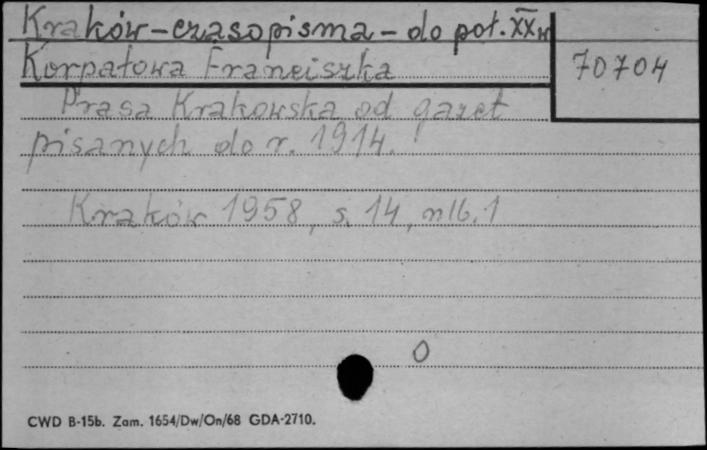 Kraków – czasopisma – do poł. XX w
Korpałowa Franciszka
70704
Prasa Krakowska od gazet
pisanych do r. 1914.
Kraków 1958, s. 14, nlb. 1
0
CWD B-15b. Zam. 1654/Dw/On/68 GDA-2710.